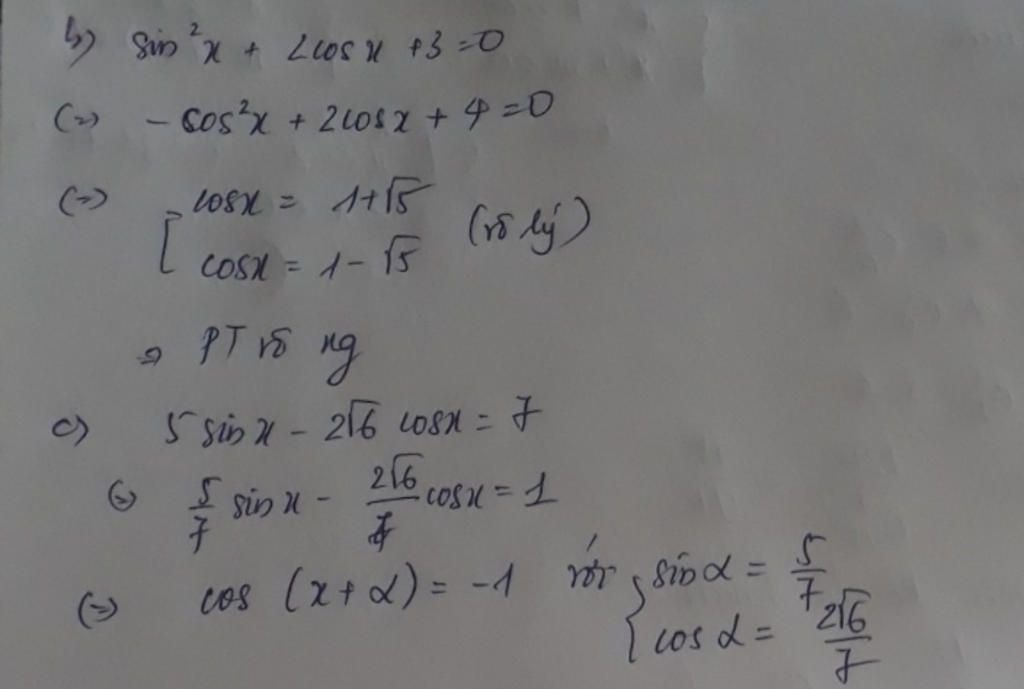 b) sin²x + 2cosx + 3 = 0
(=) - cos²x + 2cosx + 4 = 0
(=) [ cosx = 1+√5
cosx = 1-√5 (vô lý)
=> PT vô ng
c) 5 sinx - 2√6 cosx = 7
(=) 5/7 sinx - 2√6/7 cosx = 1
(=) cos (x+α) = -1 với { sinα = 5/7
cosα = 2√6/7